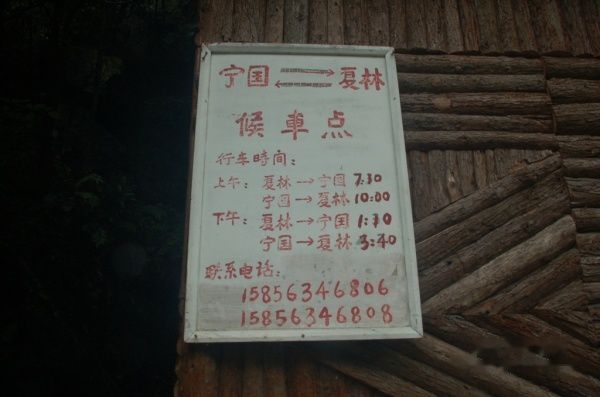 宁国 ⇌ 夏林
候車点
行车時间：
上午：夏林→宁国 7:30
宁国→夏林 10:00
下午：夏林→宁国 1:30
宁国→夏林 3:40
联系电话：
15856346806
15856346808